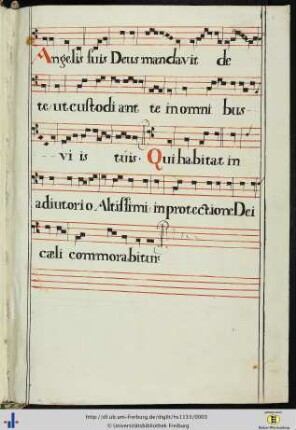 Angelis suis Deus mandavit de
te ut custodi ant te in omni bus
vi is tuis. Qui habitat in
adiutorio Altissimi in protectione Dei
cæli commorabitur
http://dl.ub.uni-freiburg.de/diglit/hs1133/0003
© Universitätsbibliothek Freiburg